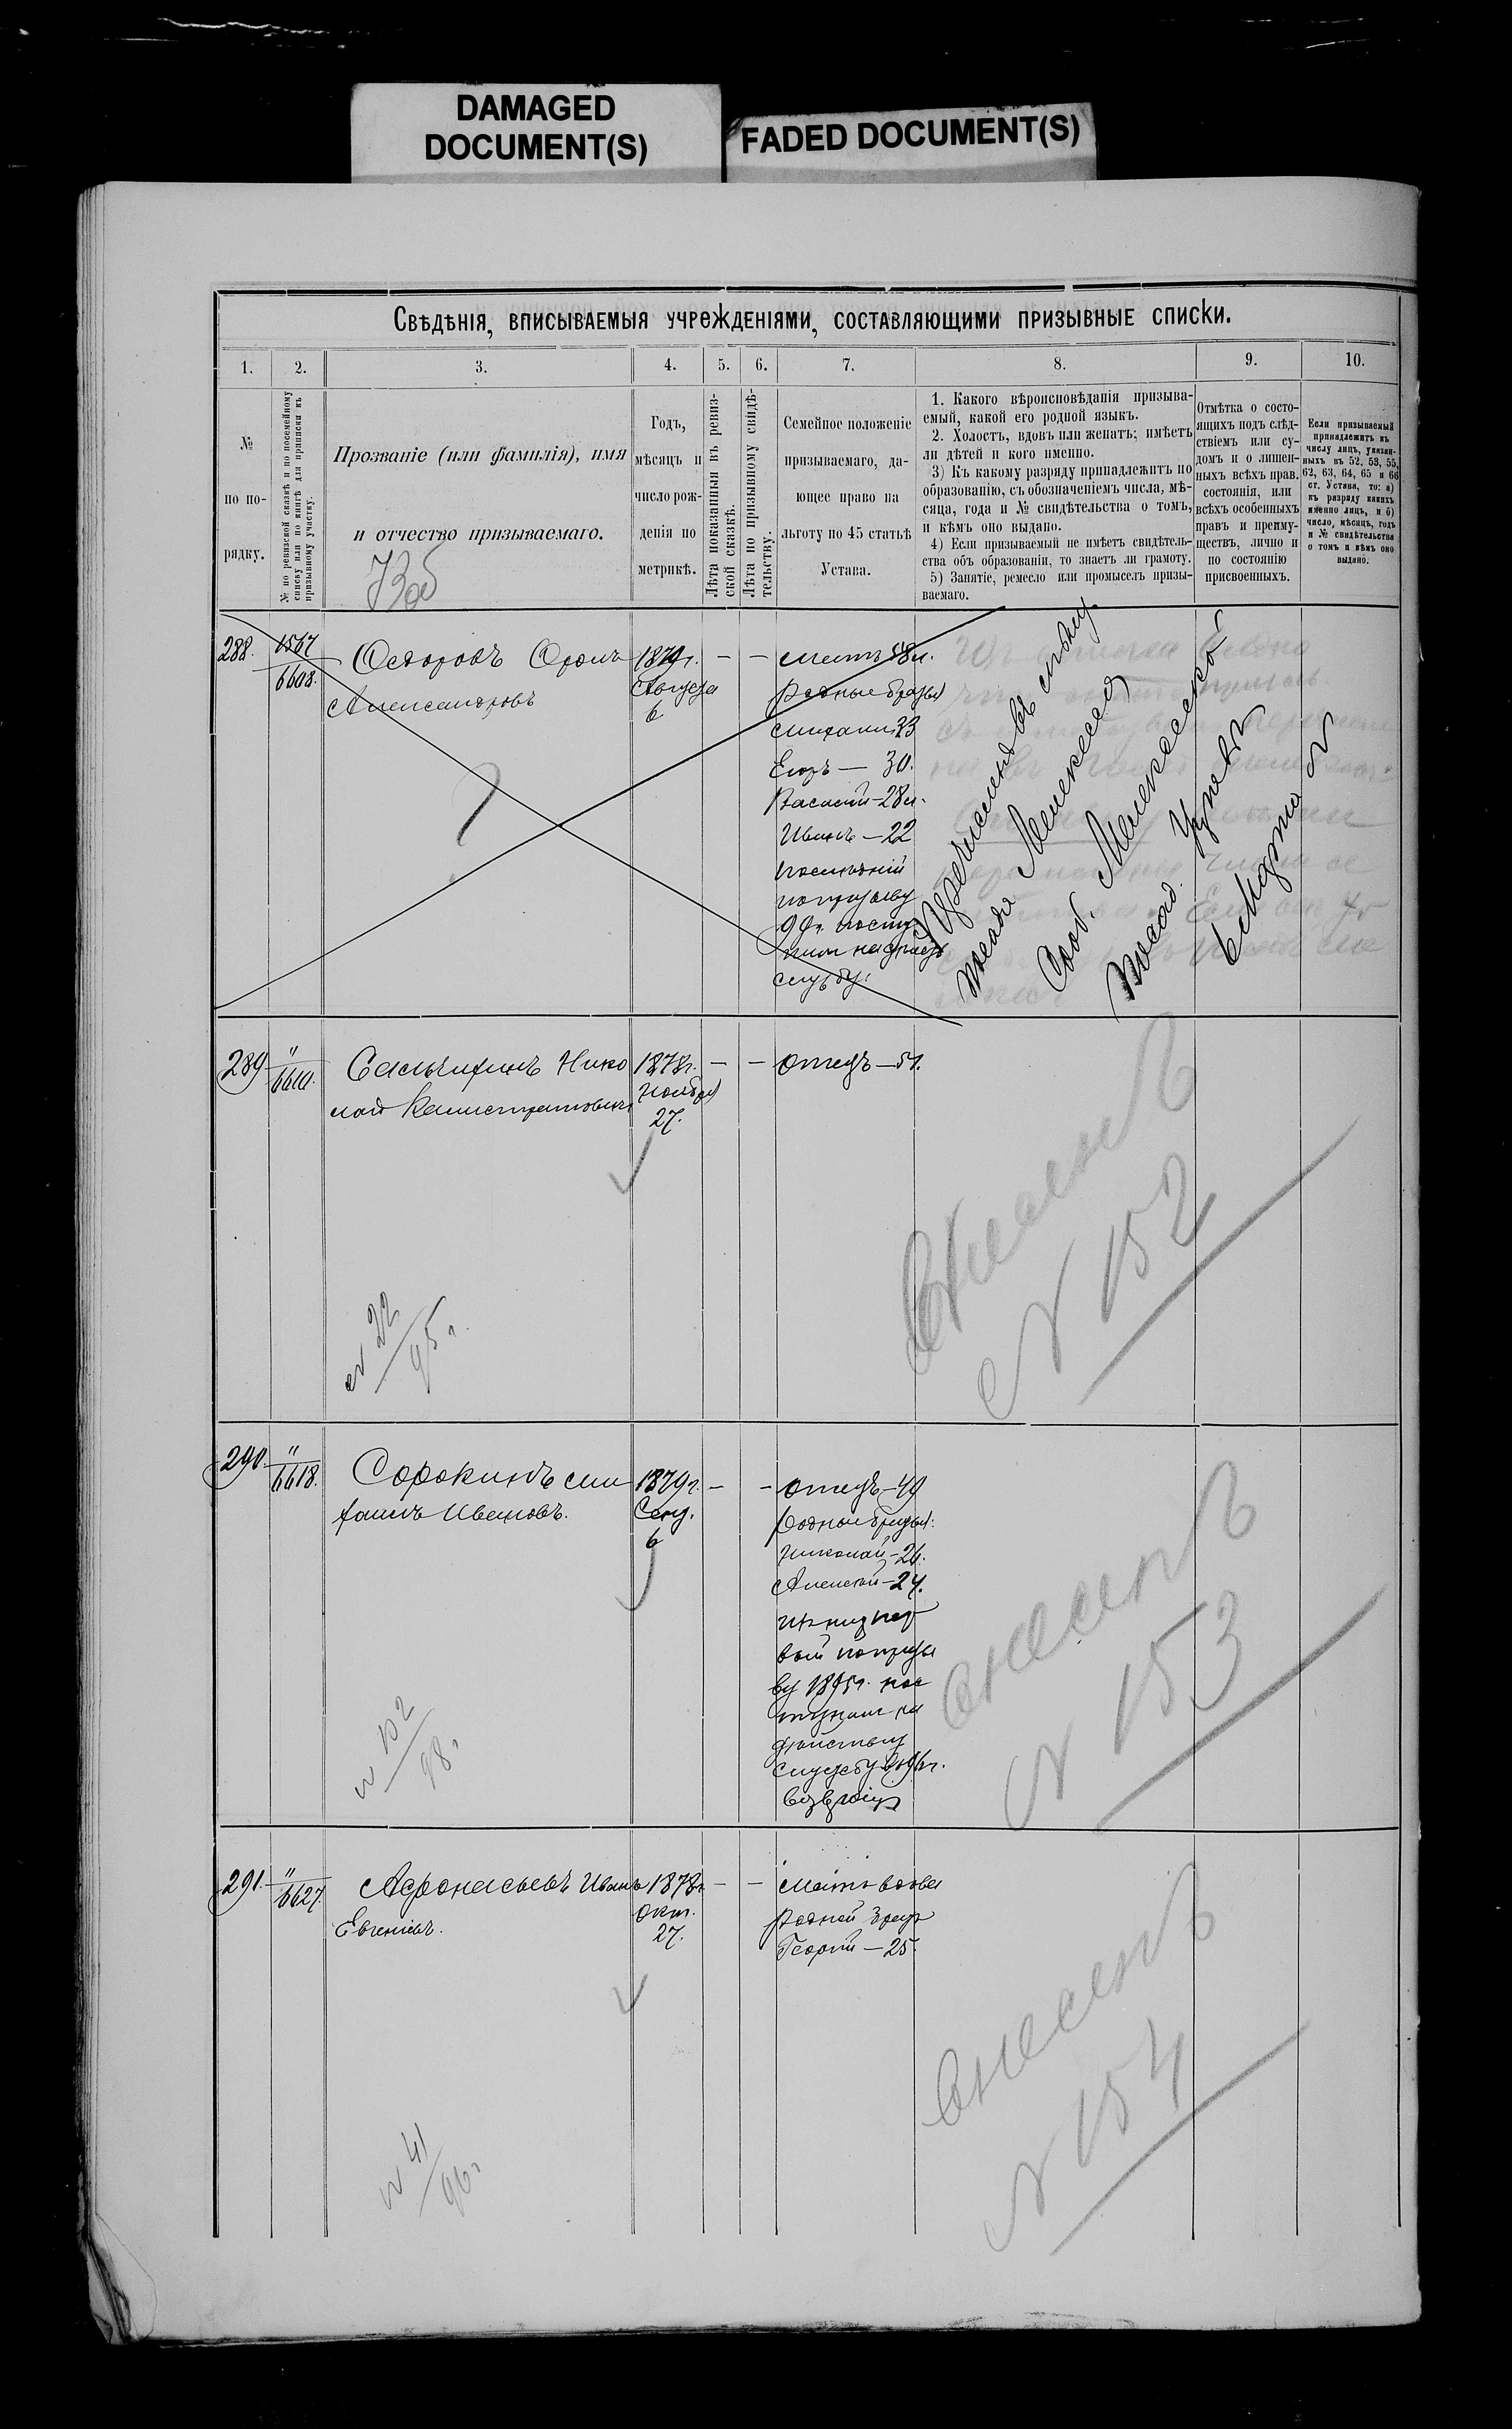 DAMAGED
DOCUMENT(S)
FADED DOCUMENT(S)
Свѣдѣнія, вписываемыя учрежденіями, составляющими призывные списки.
1. 2. 3. 4. 5. 6. 7. 8. 9. 10.
№
по по-
рядку.
№ по ревизской сказкѣ и по посемейному
списку или по книгѣ для приписки къ
призывному участку.
Прозваніе (или фамилія), имя
и отчество призываемаго.
Годъ,
мѣсяцъ и
число рож-
денія по
метрикѣ.
Лѣта показанныя въ ревиз-
ской сказкѣ.
Лѣта по призывному свидѣ-
тельству.
Семейное положеніе
призываемаго, да-
ющее право на
льготу по 45 статьѣ
Устава.
1. Какого вѣроисповѣданія призыва-
емый, какой его родной языкъ.
2. Холостъ, вдовъ или женатъ; имѣетъ
ли дѣтей и кого именно.
3) Къ какому разряду принадлежитъ по
образованію, съ обозначеніемъ числа, мѣ-
сяца, года и № свидѣтельства о томъ,
и кѣмъ оно выдано.
4) Если призываемый не имѣетъ свидѣтель-
ства объ образованіи, то знаетъ ли грамоту.
5) Занятіе, ремесло или промыселъ призы-
ваемаго.
Отмѣтка о состо-
ящихъ подъ слѣд-
ствіемъ или су-
домъ и о лишен-
ныхъ всѣхъ прав.
состоянія, или
всѣхъ особенныхъ
правъ и преиму-
ществъ, лично и
по состоянію
присвоенныхъ.
Если призываемый
принадлежитъ къ
числу лицъ, указан-
ныхъ въ 52, 53, 55,
62, 63, 64, 65 и 66
ст. Устава, то: а)
къ разряду какихъ
именно лицъ, и б)
число, мѣсяцъ, годъ
и № свидѣтельства
о томъ и кѣмъ оно
выдано.
288. 1567 Ѳедоровъ 1879г. — — Мать 58л.
6608. Александровъ Августа Родные братья
6 Михаилъ 33
Егоръ — 30.
Василій — 28л.
Иванъ — 22
послѣдній
по призыву
службу.
посада Мелекесса
Сооб. Мелекесской
Посад. Управы
6 Марта
289 " Сальчихинъ Нико 1878г. — — Отецъ — 51.
6610. лай Калистратовичъ Ноября
27.
№ 22
95г.
Внесенъ
№ 152
290. " Сорокинъ Ми 1879г. — — Отецъ — 49
6618. хаилъ Ивановъ. Сент. Родные братья:
6 Николай — 26.
Алексѣй — 24.
изъ нихъ пер
вый по призы
ву 1895г. пос
тупилъ на
дѣйствит
службу
№ 102
98г.
внесенъ
№ 153
291. " Афонасьевъ Иванъ 1878г. — — Мать вдова
6627. Евгеніевъ. Окт. родной братъ
27. Георгій — 25.
№ 41
96г
внесенъ
№ 154